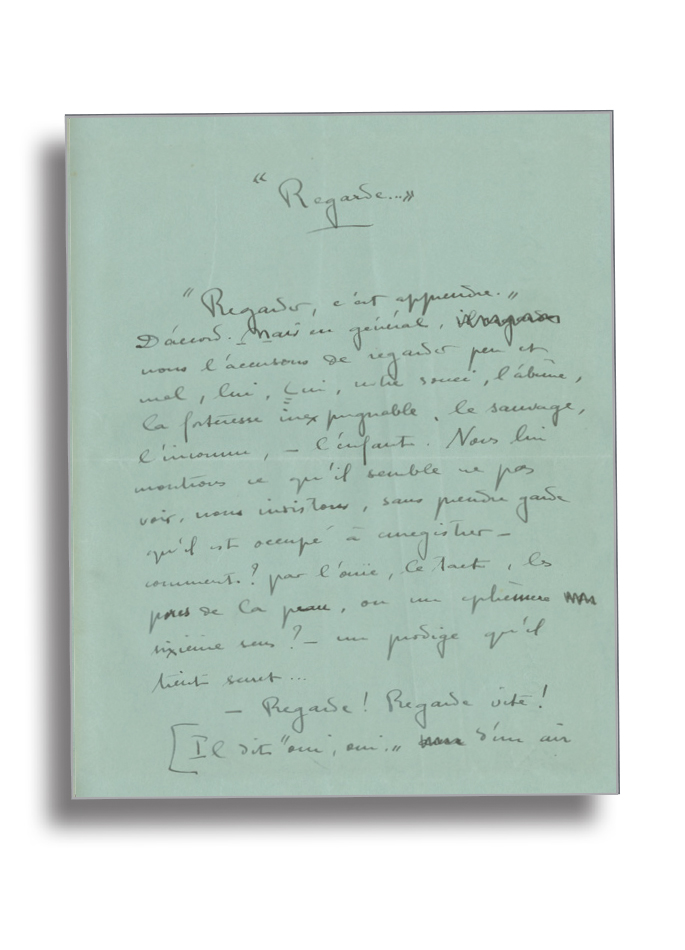 « Regarde...»
"Regarder, c'est apprendre."
D'accord. Mais en général,
nous l'accusons de regarder peu et
mal, lui, Lui, notre souci, l'abîme,
la forteresse inexpugnable, le sauvage,
l'inconnu, – l'enfant. Nous lui
montrons ce qu'il semble ne pas
voir, nous insistons, sans prendre garde
qu'il est occupé à enregistrer –
comment? par l'ouïe, le tact, les
pores de la peau, ou un éphémère
sixième sens? – un prodige qu'il
tient secret...
– Regarde! Regarde vite!
[Il dit "oui, oui." d'un air